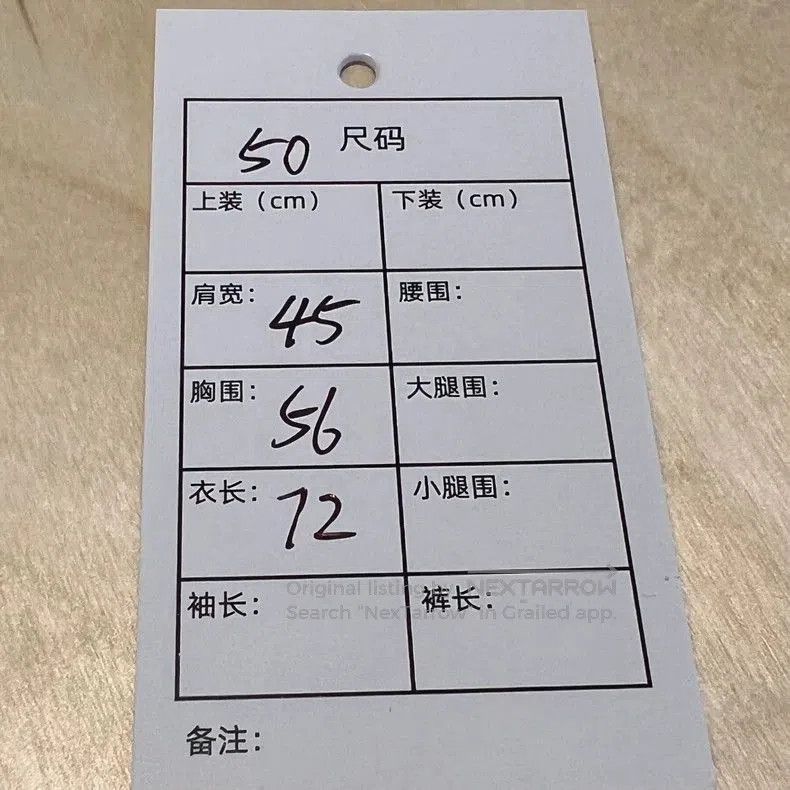 50 尺码
上装（cm） 下装（cm）
肩宽： 45 腰围：
胸围： 56 大腿围：
衣长： 72 小腿围：
Original listing by NEXTARROW
袖长： 裤长：
Search "NexTarrow" in Grailed app.
备注：